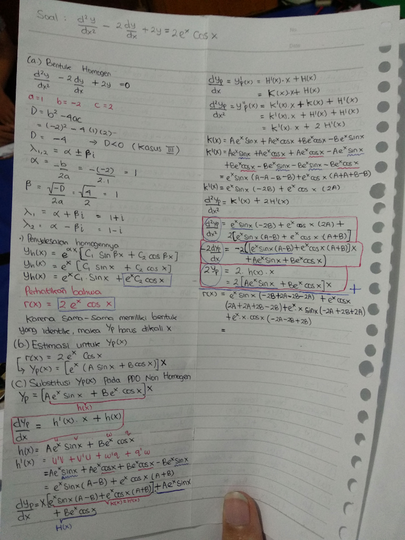 Soal : d²y/dx² - 2 dy/dx + 2y = 2eˣ cos x
(a) Bentuk Homogen
d²y/dx² - 2dy/dx + 2y = 0
a=1 b=-2 c=2
D = b² - 4ac
= (-2)² - 4(1)(2)
D = -4 → D<0 (Kasus III)
λ₁,₂ = α ± βi
α = -b/2a = -(-2)/2.1 = 1
β = √-D/2a = √4/2 = 1
λ₁ = α + βi = 1+i
λ₂ = α - βi = 1-i
Penyelesaian homogennya
yh(x) = eᵅˣ [C₁ Sin βx + C₂ cos βx]
yh(x) = eˣ [C₁ Sin x + C₂ cos x]
yh(x) = eˣC₁ Sin x + eˣC₂ cos x
Perhatikan bahwa
r(x) = 2 eˣ cos x
Karena sama-sama memiliki bentuk
yang identik, maka Yp harus dikali x
(b) Estimasi untuk Yp(x)
r(x) = 2 eˣ Cos x
↳ Yp(x) = [eˣ (A Sin x + B cos x)] x
(c) Substitusi Yp(x) Pada PDD Non Homogen
Yp = [Aeˣ Sin x + Beˣ cos x] x
h(x)
dyp/dx = h'(x) . x + h(x)
h(x) = Aeˣ Sin x + Beˣ cos x
h'(x) = u'v + v'u + w'q + q'w
= Aeˣ sin x + Aeˣ cos x + Beˣ cos x - Beˣ Sin x
= eˣ Sin x (A-B) + eˣ cos x (A+B)
dyp/dx = x[eˣ Sin x (A-B) + eˣ cos x (A+B)] + Aeˣ Sin x
+ Beˣ cos x
H(x)
dyp/dx = y'p(x) = H'(x) . x + H(x)
= K(x) x + H(x)
d²yp/dx² = y''p(x) = K'(x) . x + K(x) + H'(x)
= K'(x) . x + H'(x) + H'(x)
= K'(x) . x + 2 H'(x)
K(x) = Aeˣ Sin x + Aeˣ cos x + Beˣ cos x - Beˣ Sin x
K'(x) = Aeˣ Sin x + Aeˣ cos x + Aeˣ cos x - Aeˣ Sin x
+ Beˣ cos x - Beˣ Sin x - Beˣ Sin x - Beˣ cos x
= eˣ Sin x (A-A-B-B) + eˣ cos x (A+A+B-B)
K'(x) = eˣ Sin x (-2B) + eˣ cos x (2A)
d²yp/dx² = K'(x) + 2H'(x)
d²y/dx² = eˣ Sin x (-2B) + eˣ cos x (2A) +
2[eˣ Sin x (A-B) + eˣ cos x (A+B)]
-2dy/dx = -2([eˣ Sin x (A-B) + eˣ cos x (A+B)] x
+ Aeˣ Sin x + Beˣ cos x)
2Yp = 2 h(x) . x
= 2 [Aeˣ Sin x + Beˣ cos x] x
r(x) = eˣ Sin x (-2B+2A-2B-2A) + eˣ cos x
(2A+2A+2B-2B) + eˣ x Sin x (-2A+2B+2A)
+ eˣ x cos x (-2A-2B+2B)
=